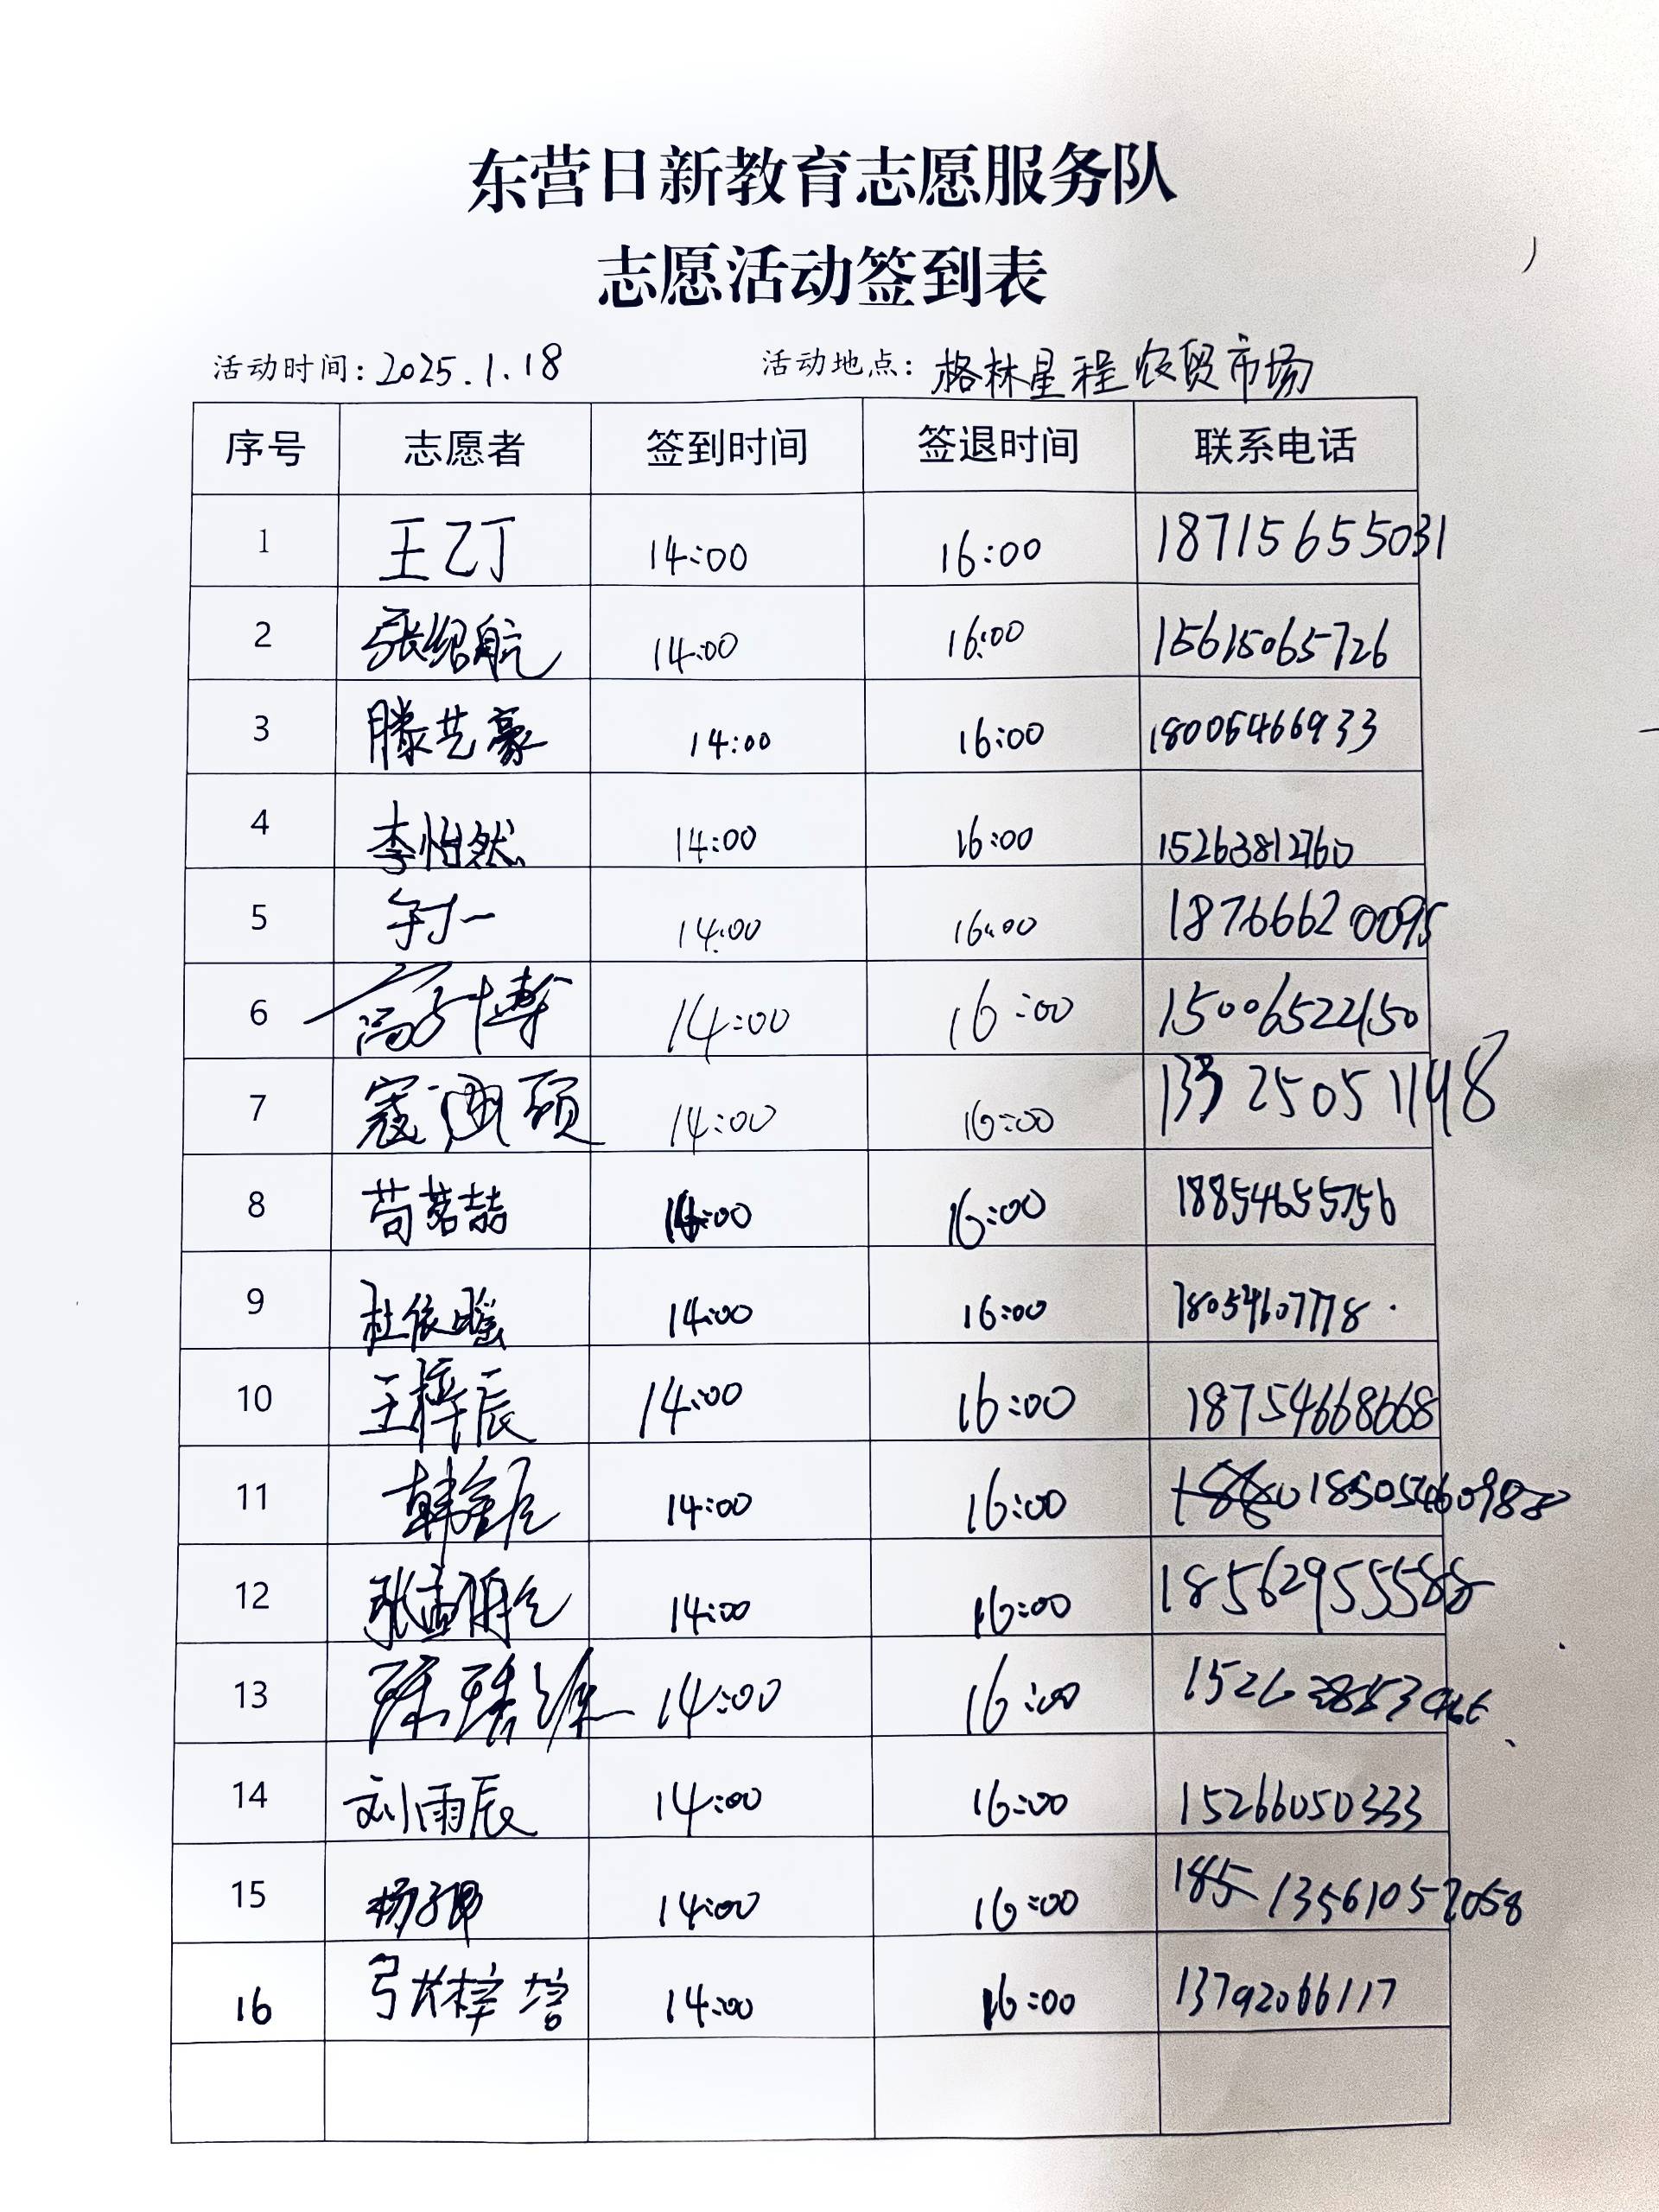 东营日新教育志愿服务队
志愿活动签到表
活动时间：2025.1.18 活动地点：格林星程农贸市场
序号 志愿者 签到时间 签退时间 联系电话
1 王乙丁 14:00 16:00 18715655031
2 张绍航 14:00 16:00 15615065726
3 滕艺豪 14:00 16:00 18005466933
4 李怡然 14:00 16:00 15263812760
5 14:00 16:00 18766620095
6 高子博 14:00 16:00 15006522150
7 寇 硕 14:00 16:00 13325051148
8 苟茗喆 14:00 16:00 18854655756
9 杜依瑶 14:00 16:00 18054607778
10 王梓辰 14:00 16:00 18754668668
11 韩 辰 14:00 16:00 18505460988
12 张孟 14:00 16:00 18562955588
13 14:00 16:00
14 刘雨辰 14:00 16:00 15266050333
15 杨子 14:00 16:00 13561057058
16 张梓萱 14:00 16:00 13792066117